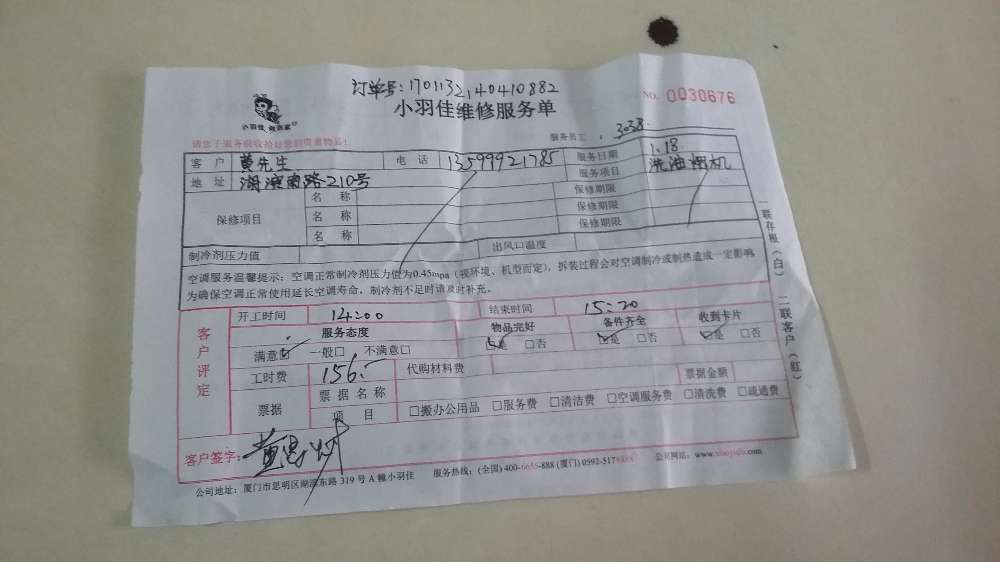 订单号:1701132140410882
小羽佳维修服务单
NO. 0030676
请您于服务前收拾好您的贵重物品!
服务员工: 3038.
客户 黄先生 电话 13599921785 服务日期 1.18
地址 湖滨南路210号 服务项目 洗油烟机
保修项目
名称 保修期限
名称 保修期限
名称 保修期限
制冷剂压力值 出风口温度
空调服务温馨提示:空调正常制冷剂压力值为0.45mpa(视环境、机型而定),拆装过程会对空调制冷或制热造成一定影响
为确保空调正常使用延长空调寿命,制冷剂不足时请及时补充。
客户评定
开工时间 14:00 结束时间 15:20
服务态度 物品完好 备件齐全 收到卡片
满意☑ 一般□ 不满意□ ☑是 □否 ☑是 □否 ☑是 □否
工时费 156.- 代购材料费
票据 票据名称 票据金额
项目 □搬办公用品 □服务费 □清洁费 □空调服务费 □清洗费 □疏通费
客户签字:
公司地址:厦门市思明区湖滨东路 319 号 A 幢小羽佳 服务热线:(全国) 400-6655-888 (厦门) 0592-517 公司网站:
一联存根(白) 二联客户(红)